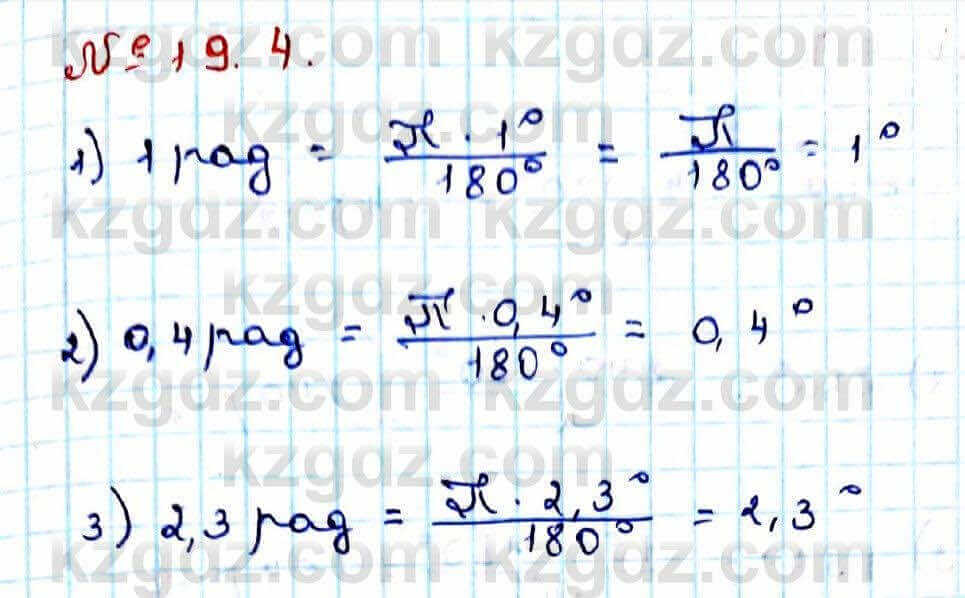 № 19.4.
1) 1 рад = π · 1° / 180° = π / 180° = 1°
2) 0,4 рад = π · 0,4° / 180° = 0,4°
3) 2,3 рад = π · 2,3° / 180° = 2,3°
kzgdz.com kzgdz.com
kzgdz.com
kzgdz.com kzgdz.com
kzgdz.com
kzgdz.com kzgdz.com
kzgdz.com
kzgdz.com kzgdz.com